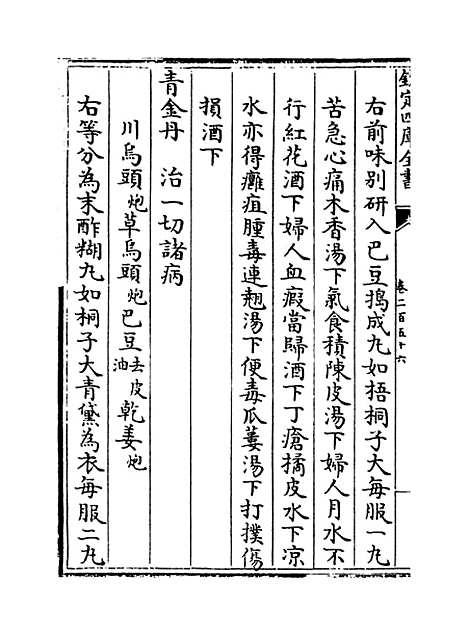 欽定四庫全書
卷二百五十六
右前味别研入巴豆搗成丸如梧桐子大每服一丸
苦急心痛木香湯下氣食積陳皮湯下婦人月水不
行紅花酒下婦人血瘕當歸酒下丁瘡橘皮水下凉
水亦得癰疽腫毒連翹湯下便毒瓜蔞湯下打撲傷
損酒下
青金丹 治一切諸病
川烏頭炮草烏頭炮巴豆去皮油乾姜炮
右等分為末酢糊丸如桐子大青黛為衣每服二丸